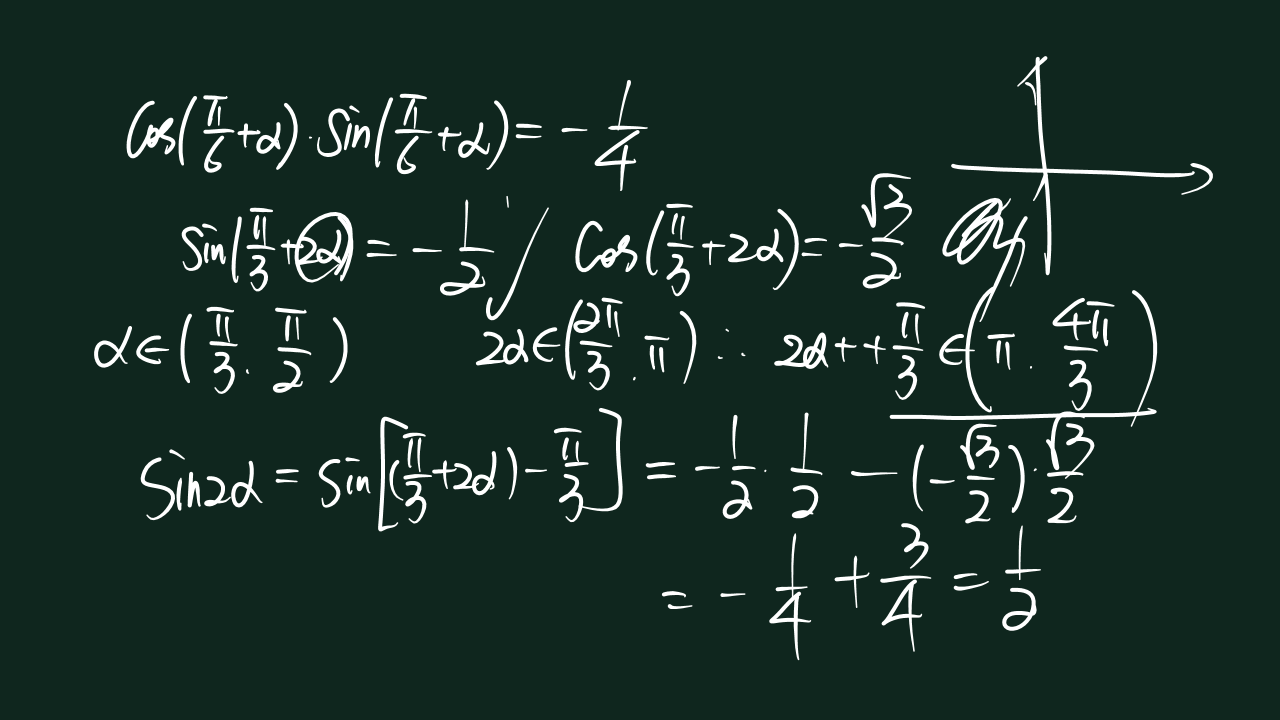 cos(π/6+α)·sin(π/6+α)=-1/4
sin(π/3+2α)=-1/2 cos(π/3+2α)=-√3/2
α∈(π/3.π/2) 2α∈(2π/3.π) ∴ 2α++π/3∈(π.4π/3)
sin2α=sin[(π/3+2α)-π/3]=-1/2·1/2-(-√3/2)·√3/2
=-1/4+3/4=1/2